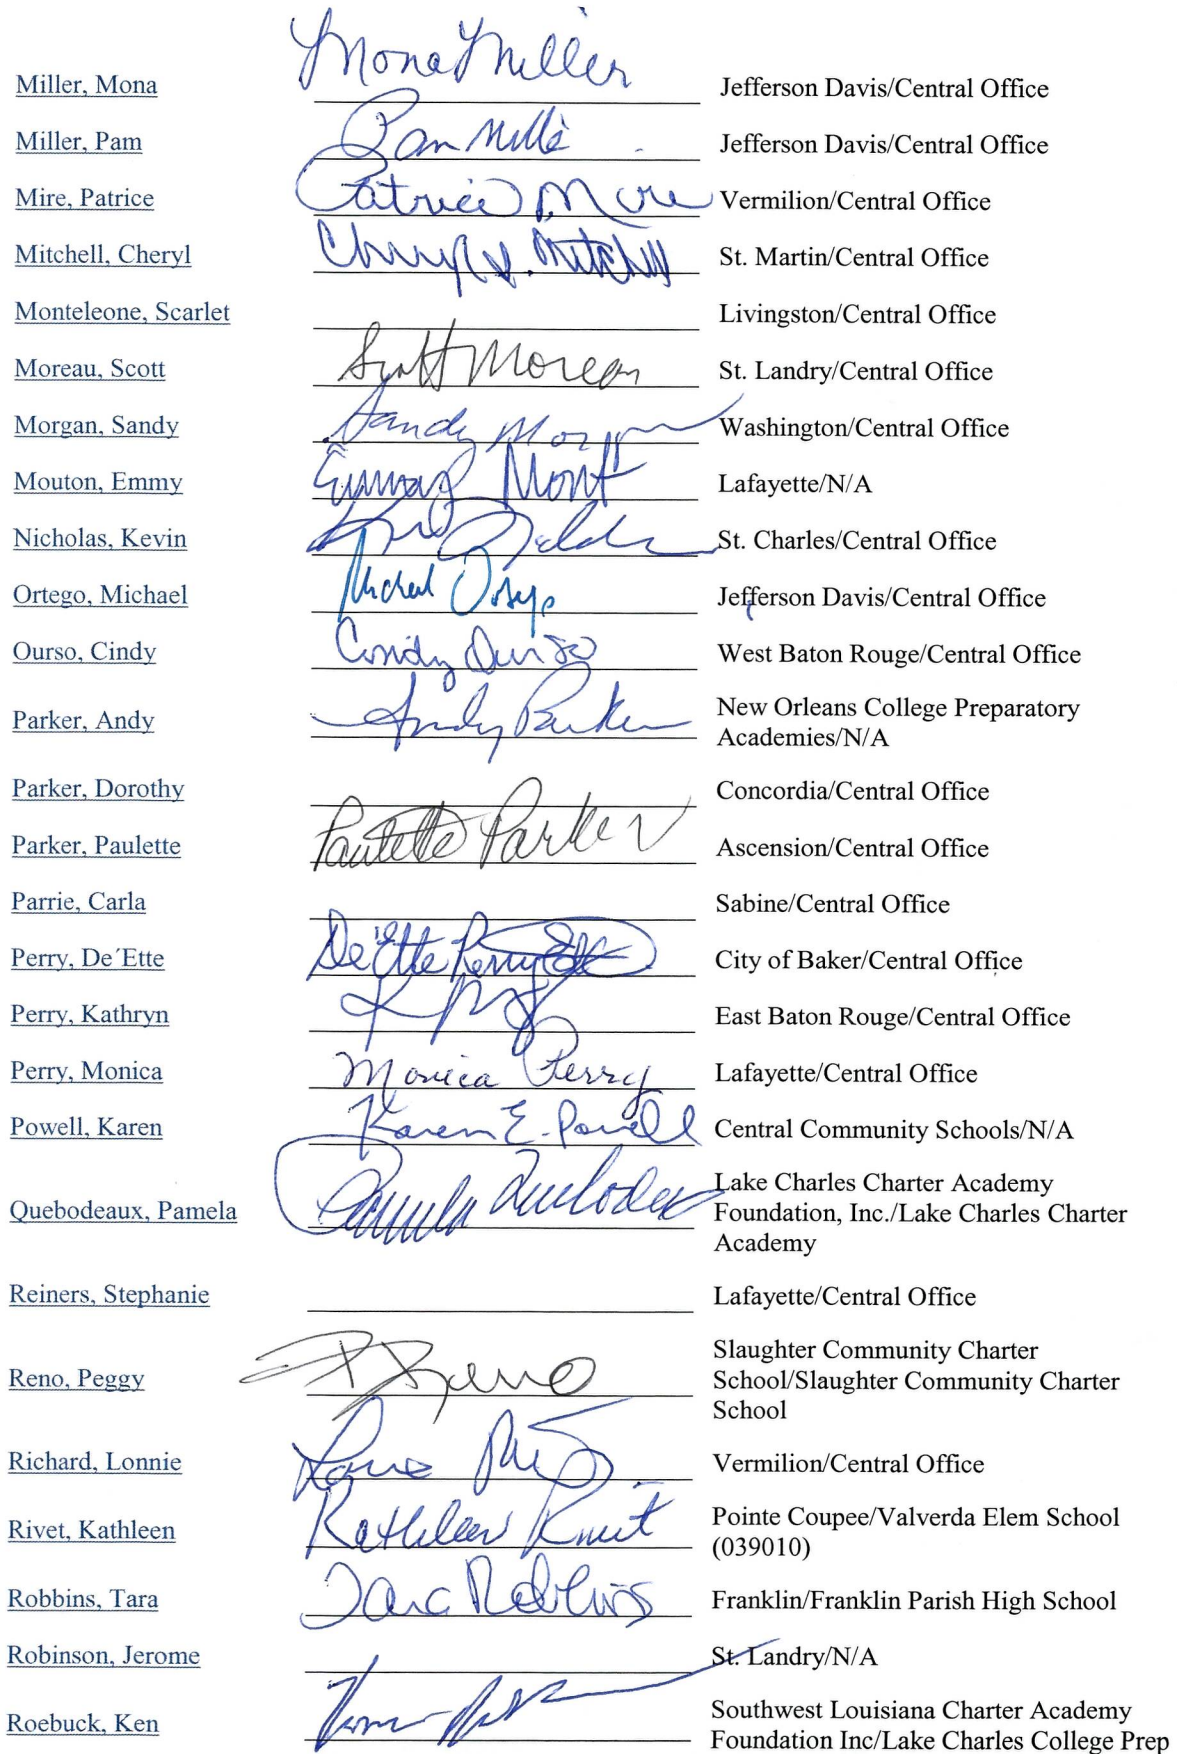 Miller, Mona Mona Miller Jefferson Davis/Central Office
Miller, Pam Pam Mille Jefferson Davis/Central Office
Mire, Patrice Patrice Mire Vermilion/Central Office
Mitchell, Cheryl Cheryl S. Mitchell St. Martin/Central Office
Monteleone, Scarlet Livingston/Central Office
Moreau, Scott Scott Moreau St. Landry/Central Office
Morgan, Sandy Sandy Morgan Washington/Central Office
Mouton, Emmy Lafayette/N/A
Nicholas, Kevin St. Charles/Central Office
Ortego, Michael Michael Ortego Jefferson Davis/Central Office
Ourso, Cindy Cindy Ourso West Baton Rouge/Central Office
Parker, Andy Andy Parker New Orleans College Preparatory
Academies/N/A
Parker, Dorothy Concordia/Central Office
Parker, Paulette Paulette Parker Ascension/Central Office
Parrie, Carla Sabine/Central Office
Perry, De´Ette De'Ette Perry City of Baker/Central Office
Perry, Kathryn East Baton Rouge/Central Office
Perry, Monica Monica Perry Lafayette/Central Office
Powell, Karen Karen E. Powell Central Community Schools/N/A
Lake Charles Charter Academy
Quebodeaux, Pamela Pamela Quebodeaux Foundation, Inc./Lake Charles Charter
Academy
Reiners, Stephanie Lafayette/Central Office
Slaughter Community Charter
Reno, Peggy P Reno School/Slaughter Community Charter
School
Richard, Lonnie Vermilion/Central Office
Rivet, Kathleen Kathleen Rivet Pointe Coupee/Valverda Elem School
(039010)
Robbins, Tara Tara Robbins Franklin/Franklin Parish High School
Robinson, Jerome St. Landry/N/A
Roebuck, Ken Southwest Louisiana Charter Academy
Foundation Inc/Lake Charles College Prep